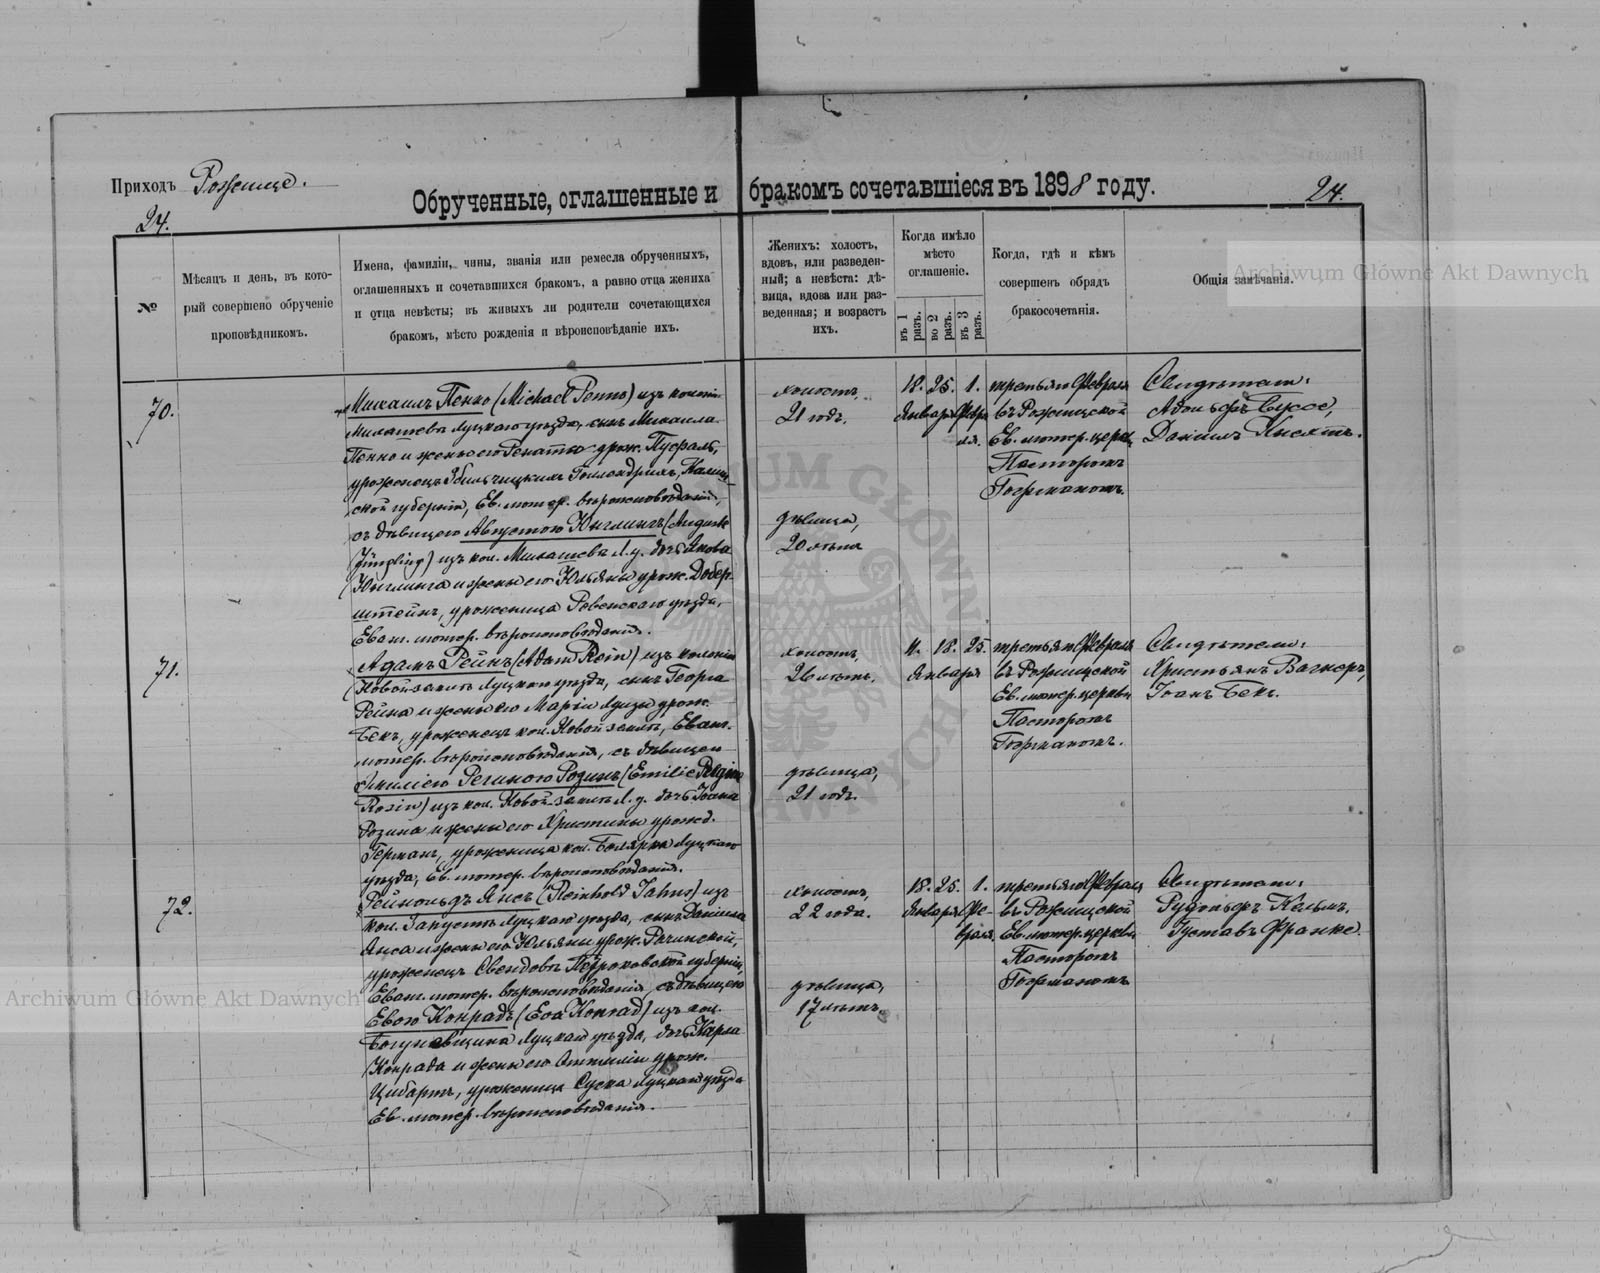 Приходъ Рожище.
Обрученные, оглашенные и бракомъ сочетавшіеся въ 1898 году.
24.
24.
№
Мѣсяцъ и день, въ кото-
рый совершено обрученіе
проповѣдникомъ.
Имена, фамиліи, чины, званія или ремесла обрученныхъ,
оглашенныхъ и сочетавшихся бракомъ, а равно отца жениха
и отца невѣсты; въ живыхъ ли родители сочетающихся
бракомъ, мѣсто рожденія и вѣроисповѣданіе ихъ.
Женихъ: холостъ,
вдовъ, или разведен-
ный; а невѣста: дѣ-
вица, вдова или раз-
веденная; и возрастъ
ихъ.
Когда имѣло
мѣсто
оглашеніе.
въ 1 разъ.
во 2 разъ.
въ 3 разъ.
Когда, гдѣ и кѣмъ
совершенъ обрядъ
бракосочетанія.
Общія замѣчанія.
Archiwum Główne Akt Dawnych
70.
Михаилъ Пенно (Michael Penno) изъ колоніи
Луцкаго уѣзда, сынъ Михаила
Пенно и жены его Ренаты урож.
уроженецъ
ской губерніи, Ев. лютер. вѣроисповѣданія,
съ дѣвицею Августою Юнглингъ (Auguste
Jüngling) изъ кол. Л. у. дочь Якова
Юнглинга и жены его Юльяны урож. Добер-
штейнъ, уроженица Ровенскаго уѣзда,
Еванг. лютер. вѣроисповѣданія.
холостъ,
21 годъ.
дѣвица,
20 лѣтъ
18. 25. 1.
Января Февра
ля.
третьяго Февраля
въ Рожищской
Ев. лютер. церкви
Пасторомъ
Свидѣтели:
Адольфъ Буссе,
Даніилъ
71.
Адамъ Рейнъ (Adam Rein) изъ колоніи
Луцкаго уѣзда, сынъ Георга
Рейна и жены его Маріи Луизы урож.
Бекъ, уроженецъ кол. Еванг.
лютер. вѣроисповѣданія, съ дѣвицею
Эмиліею Региною Розинъ (Emilie Regine
Rosin) изъ кол. Л. у. дочь Іоана
Розина и жены его Христины урожд.
Германъ, уроженица кол. Боярка Луцкаго
уѣзда, Ев. лютер. вѣроисповѣданія.
холостъ,
26 лѣтъ.
дѣвица,
21 годъ.
11. 18. 25.
Января
третьяго Февраля
въ Рожищской
Ев. лютер. церкви
Пасторомъ
Свидѣтели:
Христьянъ Вагнеръ,
Іоанъ Бекъ.
72.
Рейнольдъ Янсъ (Reinhold Jahns) изъ
кол. Запустъ Луцкаго уѣзда, сынъ Даніила
Янса и жены его Юльяны урож.
уроженецъ Петроковской губерніи,
Еванг. лютер. вѣроисповѣданія, съ дѣвицею
Евою Конрадъ (Eva Konrad) изъ кол.
Луцкаго уѣзда, дочь Карла
Конрада и жены его Оттиліи урож.
Цибартъ, уроженица Луцкаго уѣзда
Ев. лютер. вѣроисповѣданія.
холостъ,
22 года.
дѣвица,
17 лѣтъ.
18. 25. 1.
Января Фе-
враля.
третьяго Февраля
въ Рожищской
Ев. лютер. церкви
Пасторомъ
Свидѣтели:
Рудольфъ Кельмъ.
Густавъ Франке.
Archiwum Główne Akt Dawnych